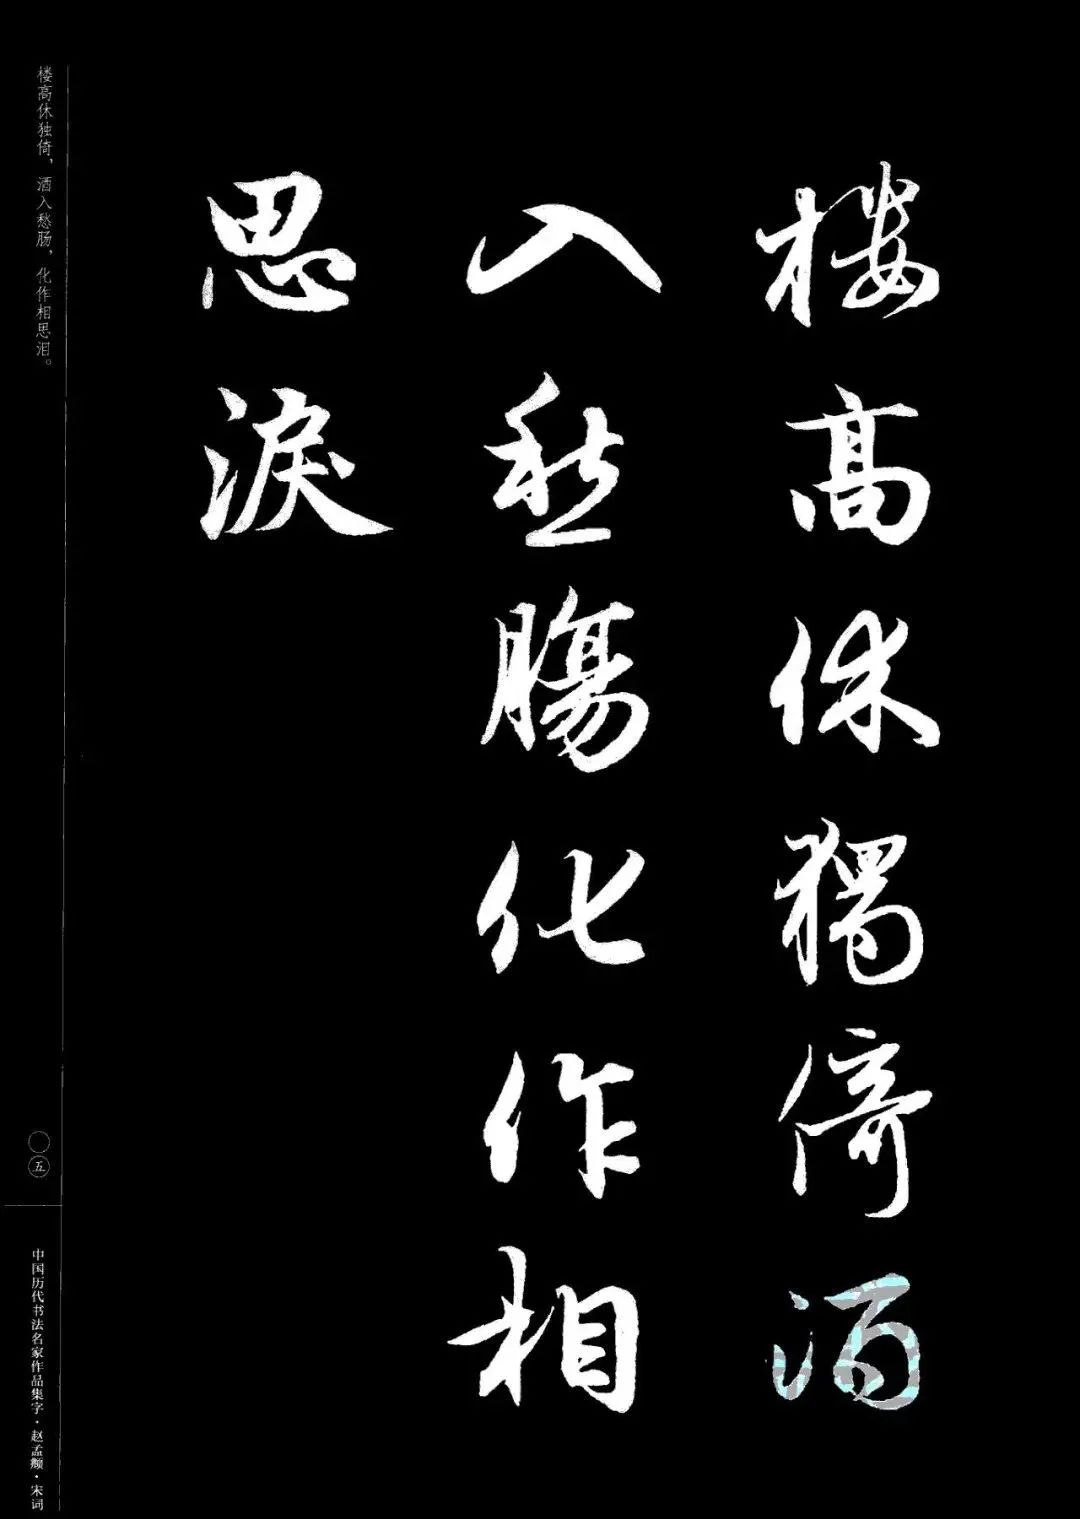 樓高休獨倚酒
入愁腸化作相
思淚
楼高休独倚，酒入愁肠，化作相思泪。
〇五
中国历代书法名家作品集字·赵孟頫·宋词